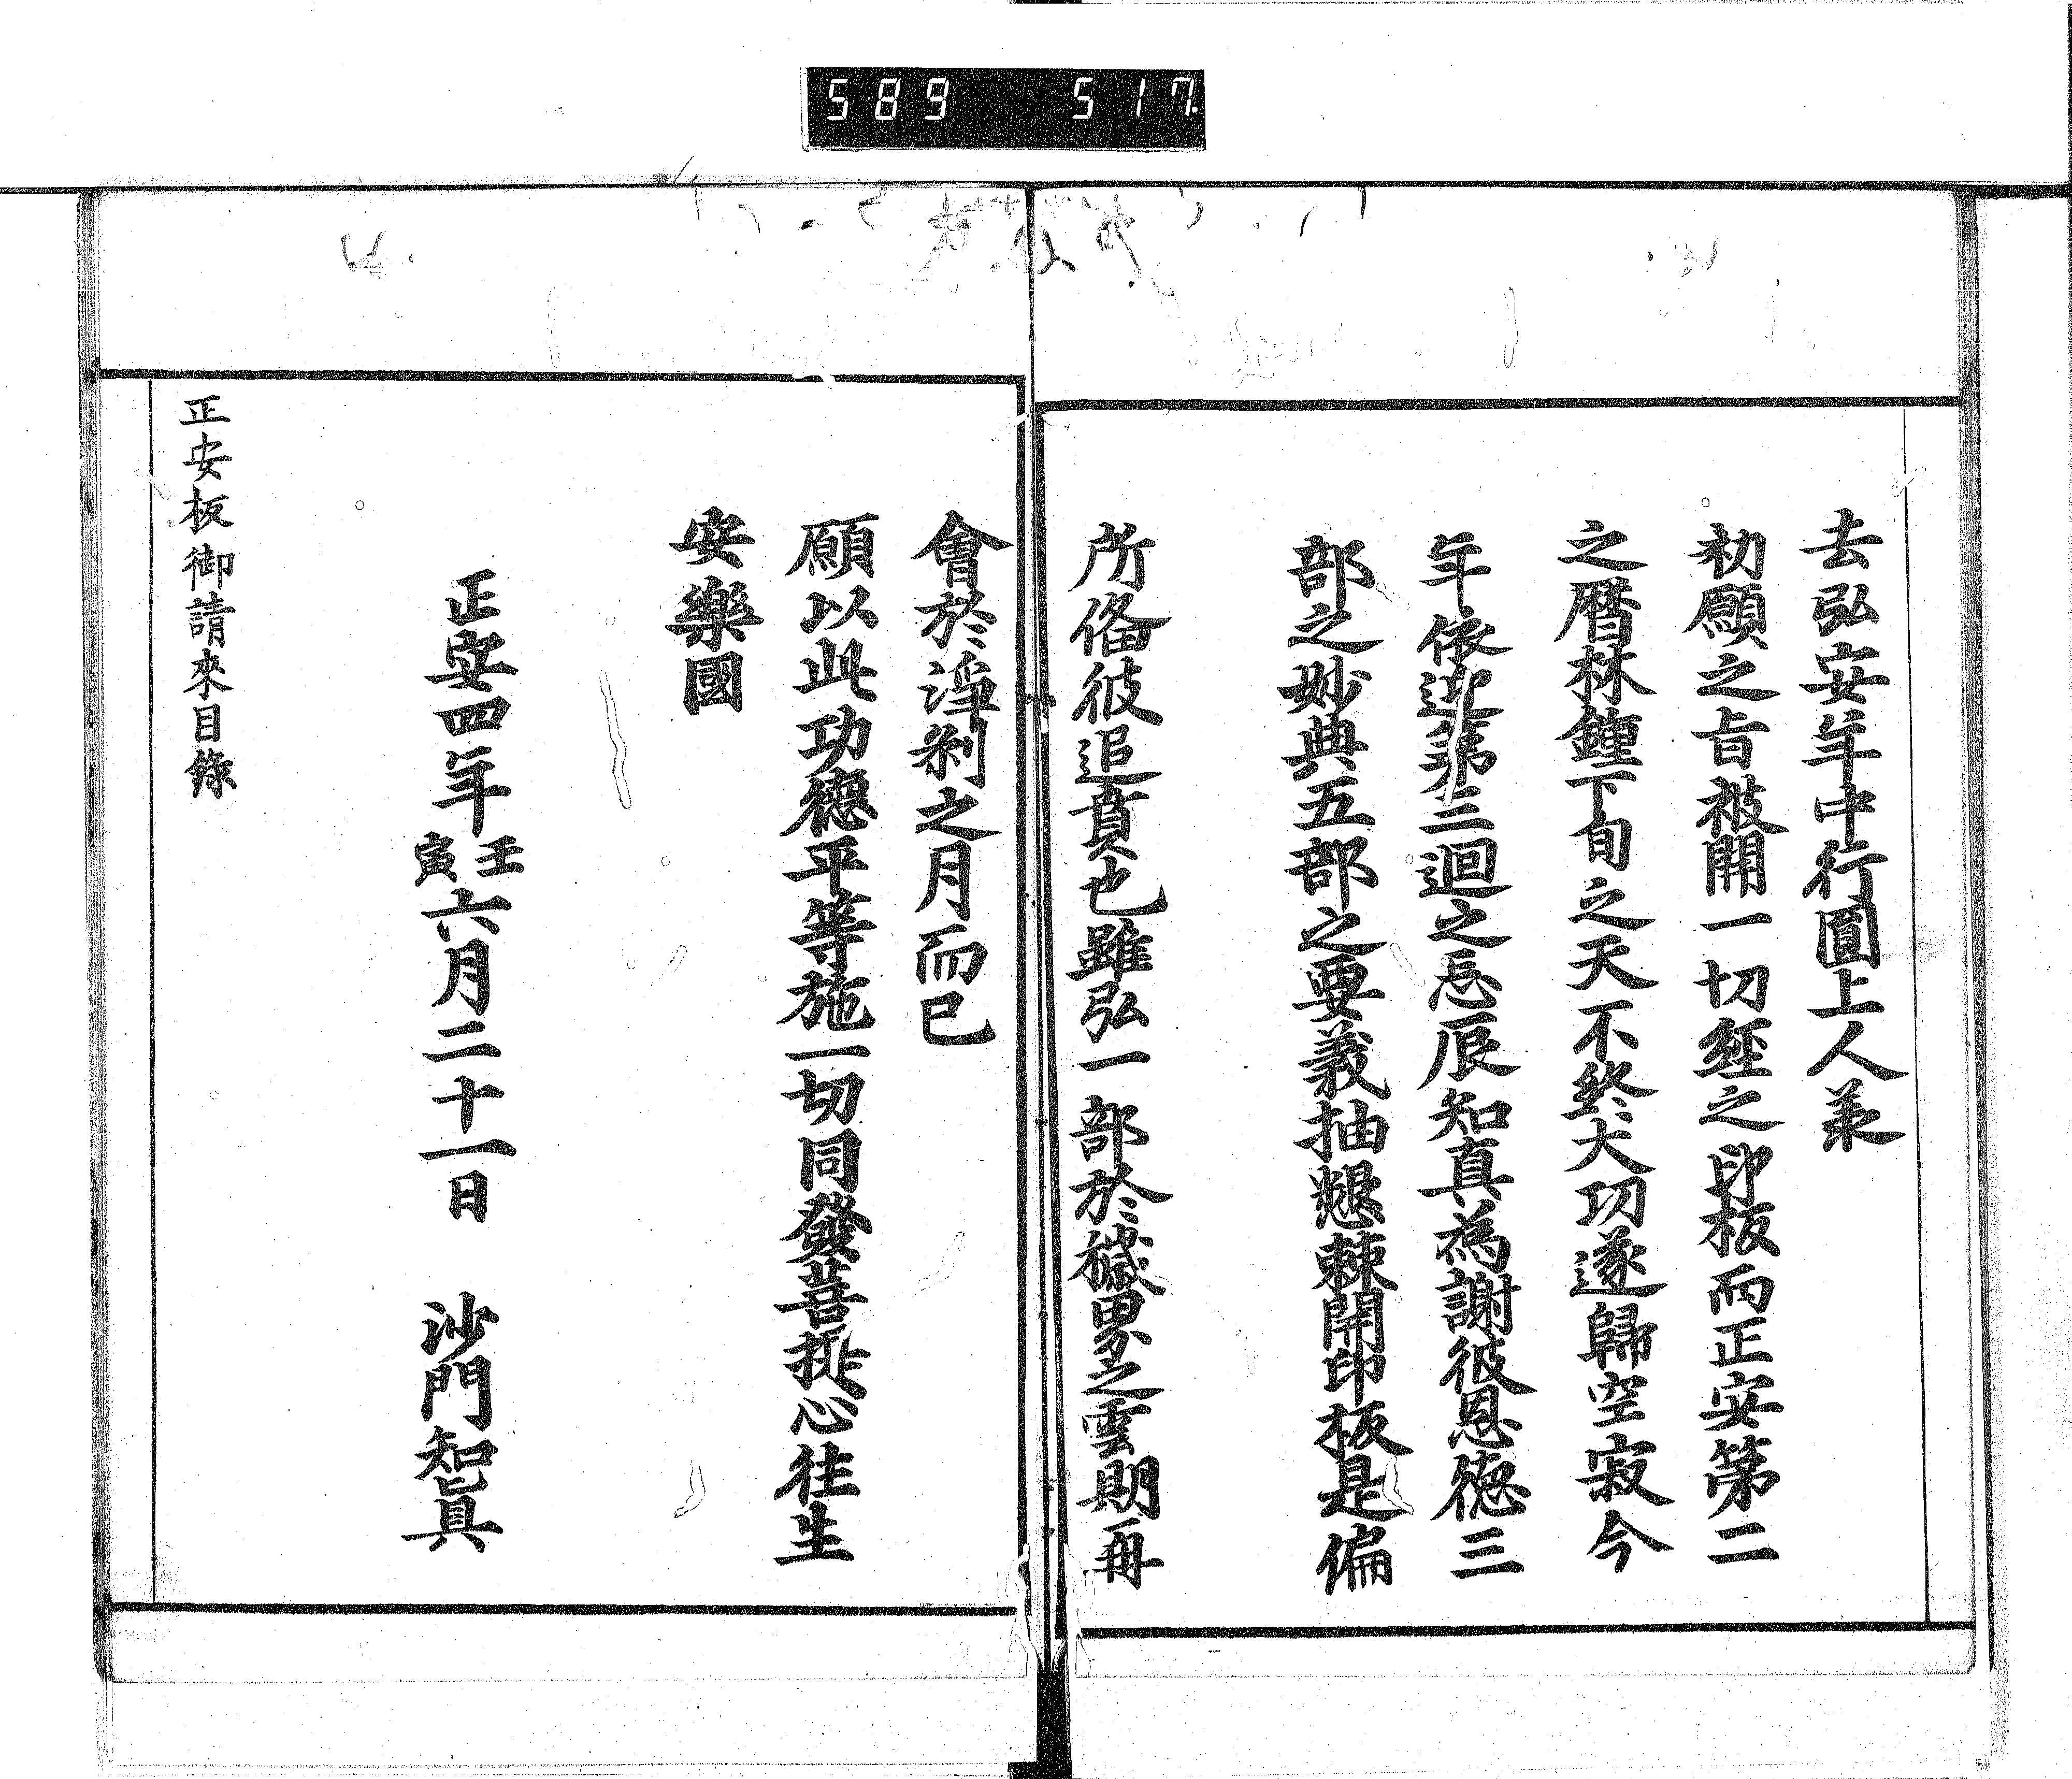 589 517
去弘安年中行圓上人兼
初願之旨被開一切經之印板而正安第二
之暦林鐘下旬之天不終大功遂歸空寂今
年依迎第三迴之忌辰知真為謝彼恩德三
部之妙典五部之要義抽懇棘開印板是偏
所俻彼追賁也雖弘一部於穢界之雲期再
會於淨刹之月而已
願以此功德平等施一切同發菩提心往生
安樂國
正安四年壬寅六月二十一日 沙門智真
正安板御請來目錄